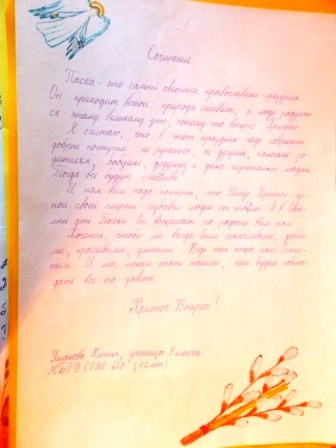 Сочинение.
Пасха - это самый светлый православный праздник.
Он приходит весной, природа оживает, а люди радуют-
ся этому великому дню, потому что воскрес Христос.
Я считаю, что в этот праздник надо совершать
добрые поступки: не ругаться, не драться, помогать ро-
дителям, бабушке, дедушке и даже незнакомым людям.
Тогда все будут счастливы.
И нам всем надо помнить, что Иисус Христос це-
ной своей смерти избавил людей от грехов. А в Свет-
лый день Пасхи Он воскресает на радость всем нам.
Хочется, чтобы мы всегда были счастливыми, добры-
ми, красивыми, умными. Ведь так хочет наш Спаси-
тель. И мы можем стать такими, если будем соблю-
дать все его заветы.
Христос Воскрес!
Ксения, ученица 5 класса
МБОУ СОШ (12 лет)